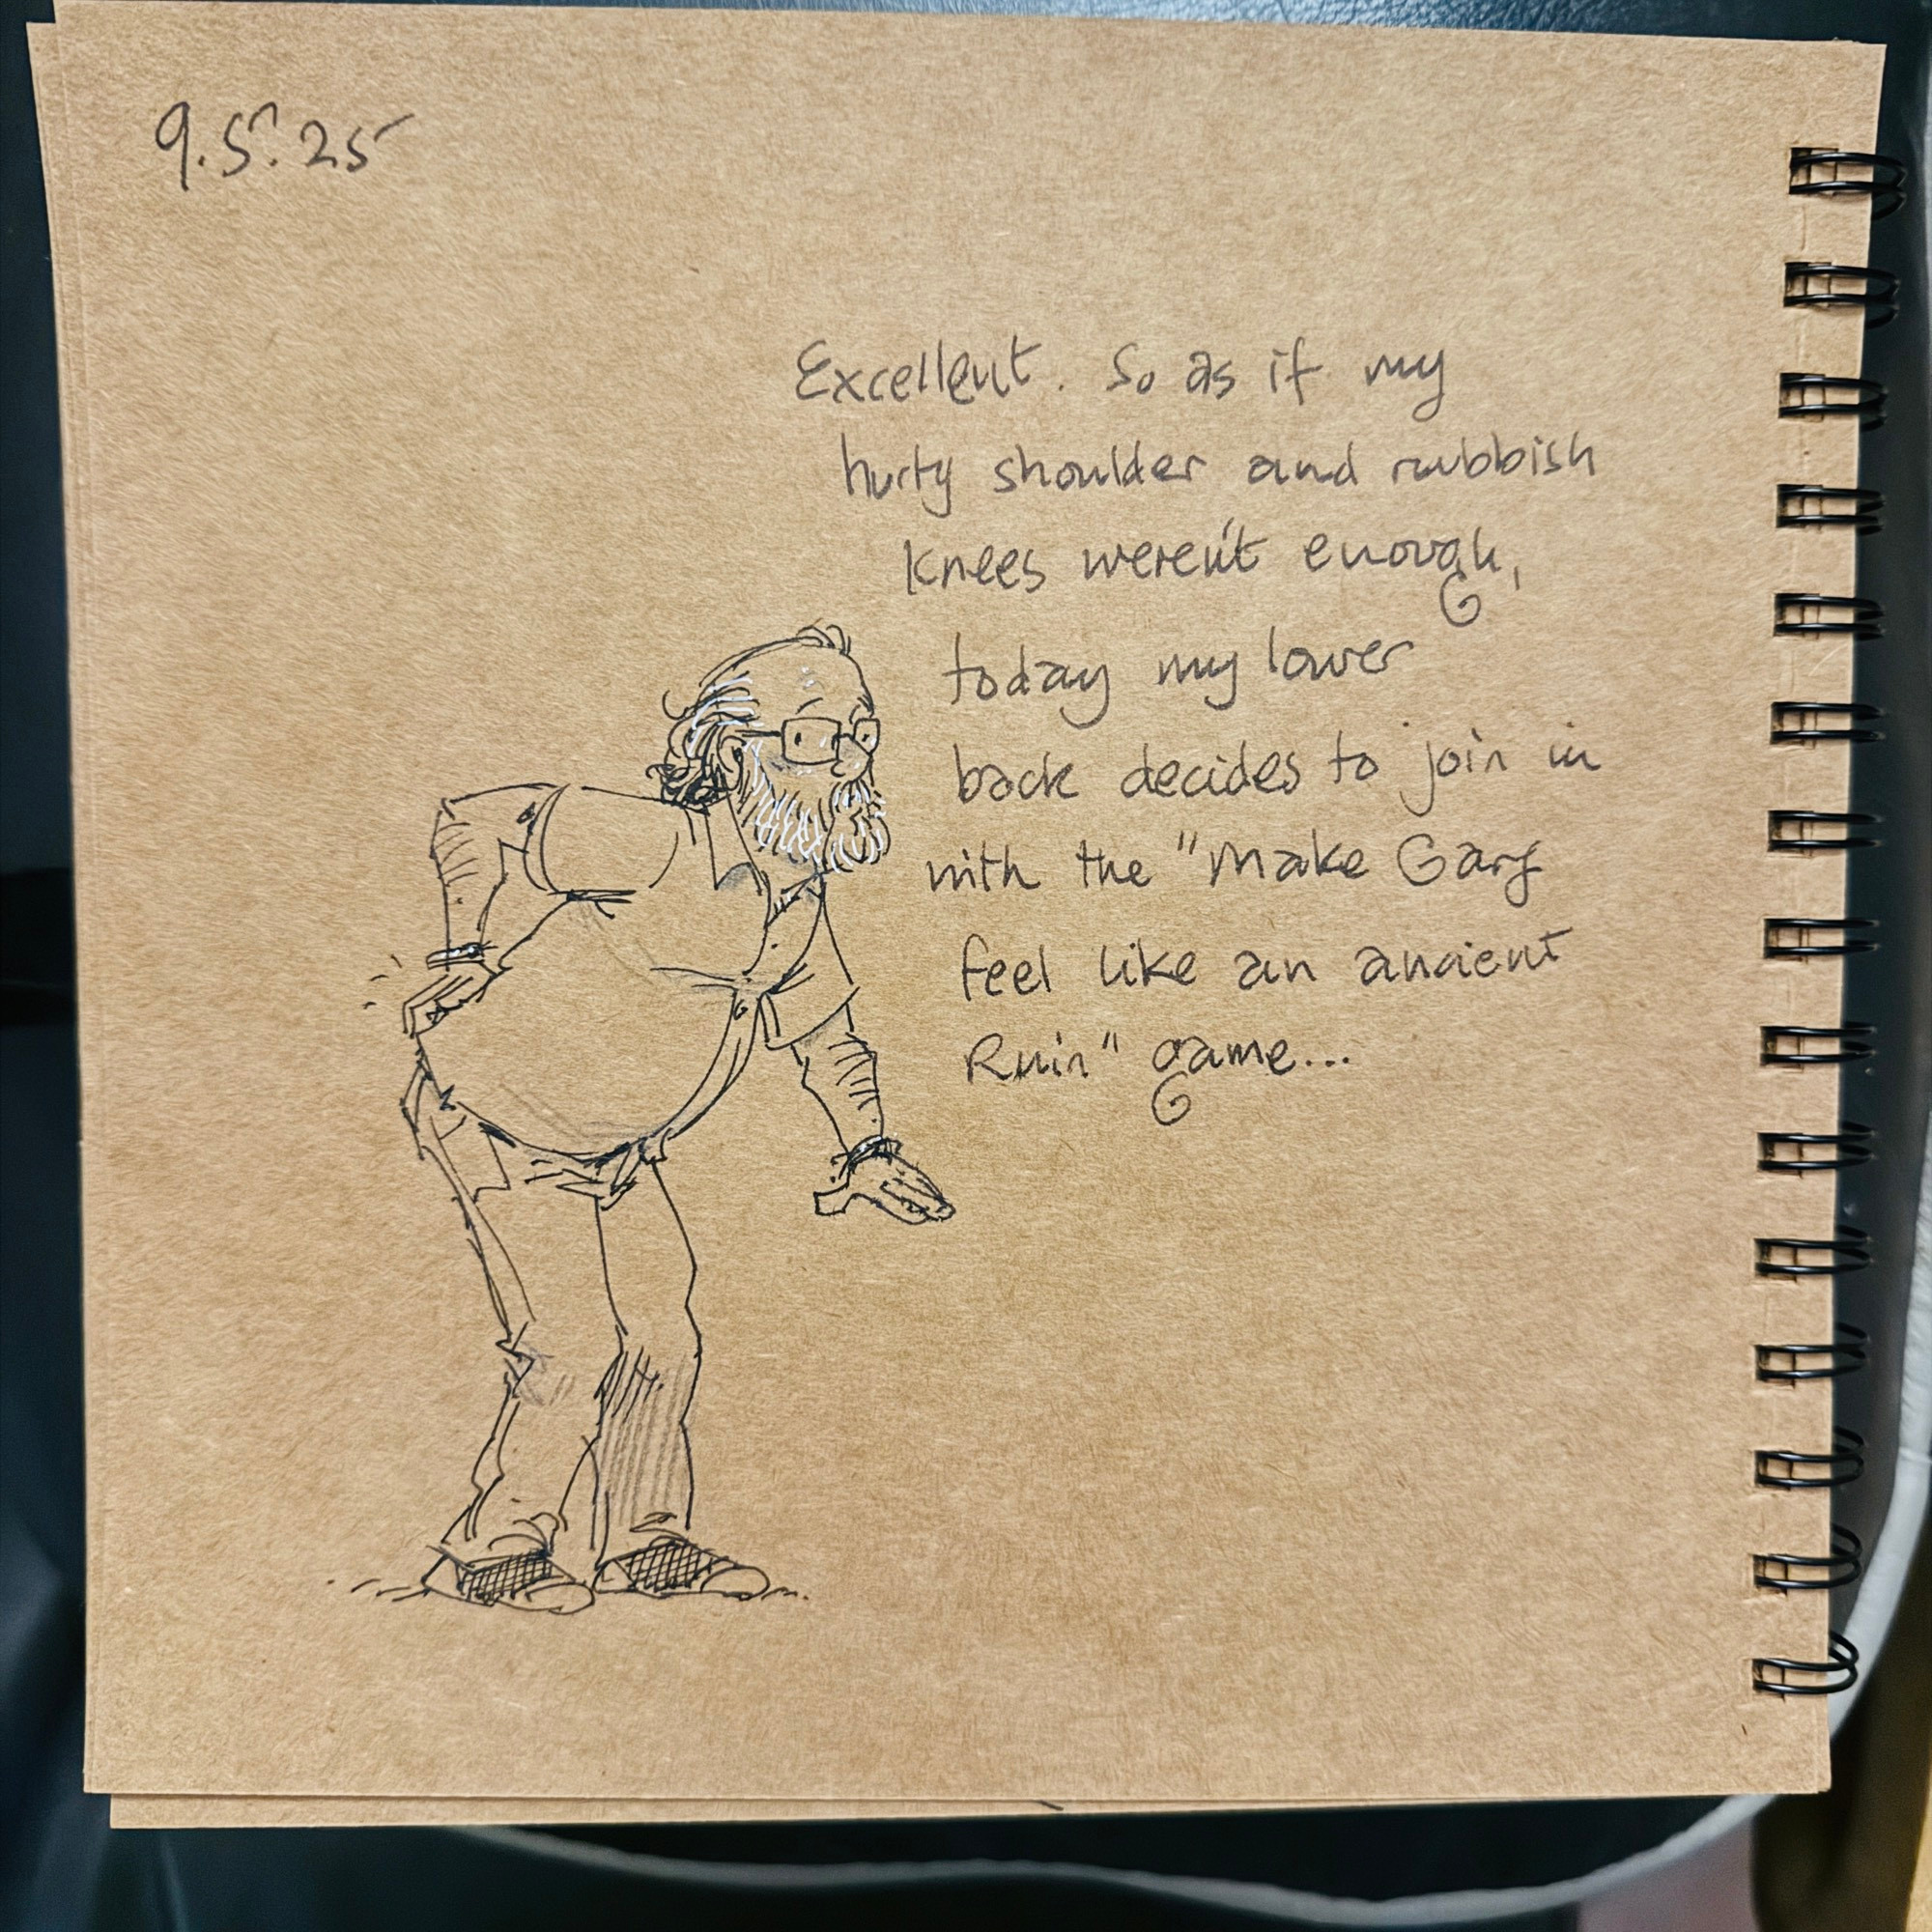 9.5.25
Excellent. So as if my
hurty shoulder and rubbish
knees weren't enough,
today my lower
back decides to join in
with the "Make Gary
feel like an ancient
Ruin" game...